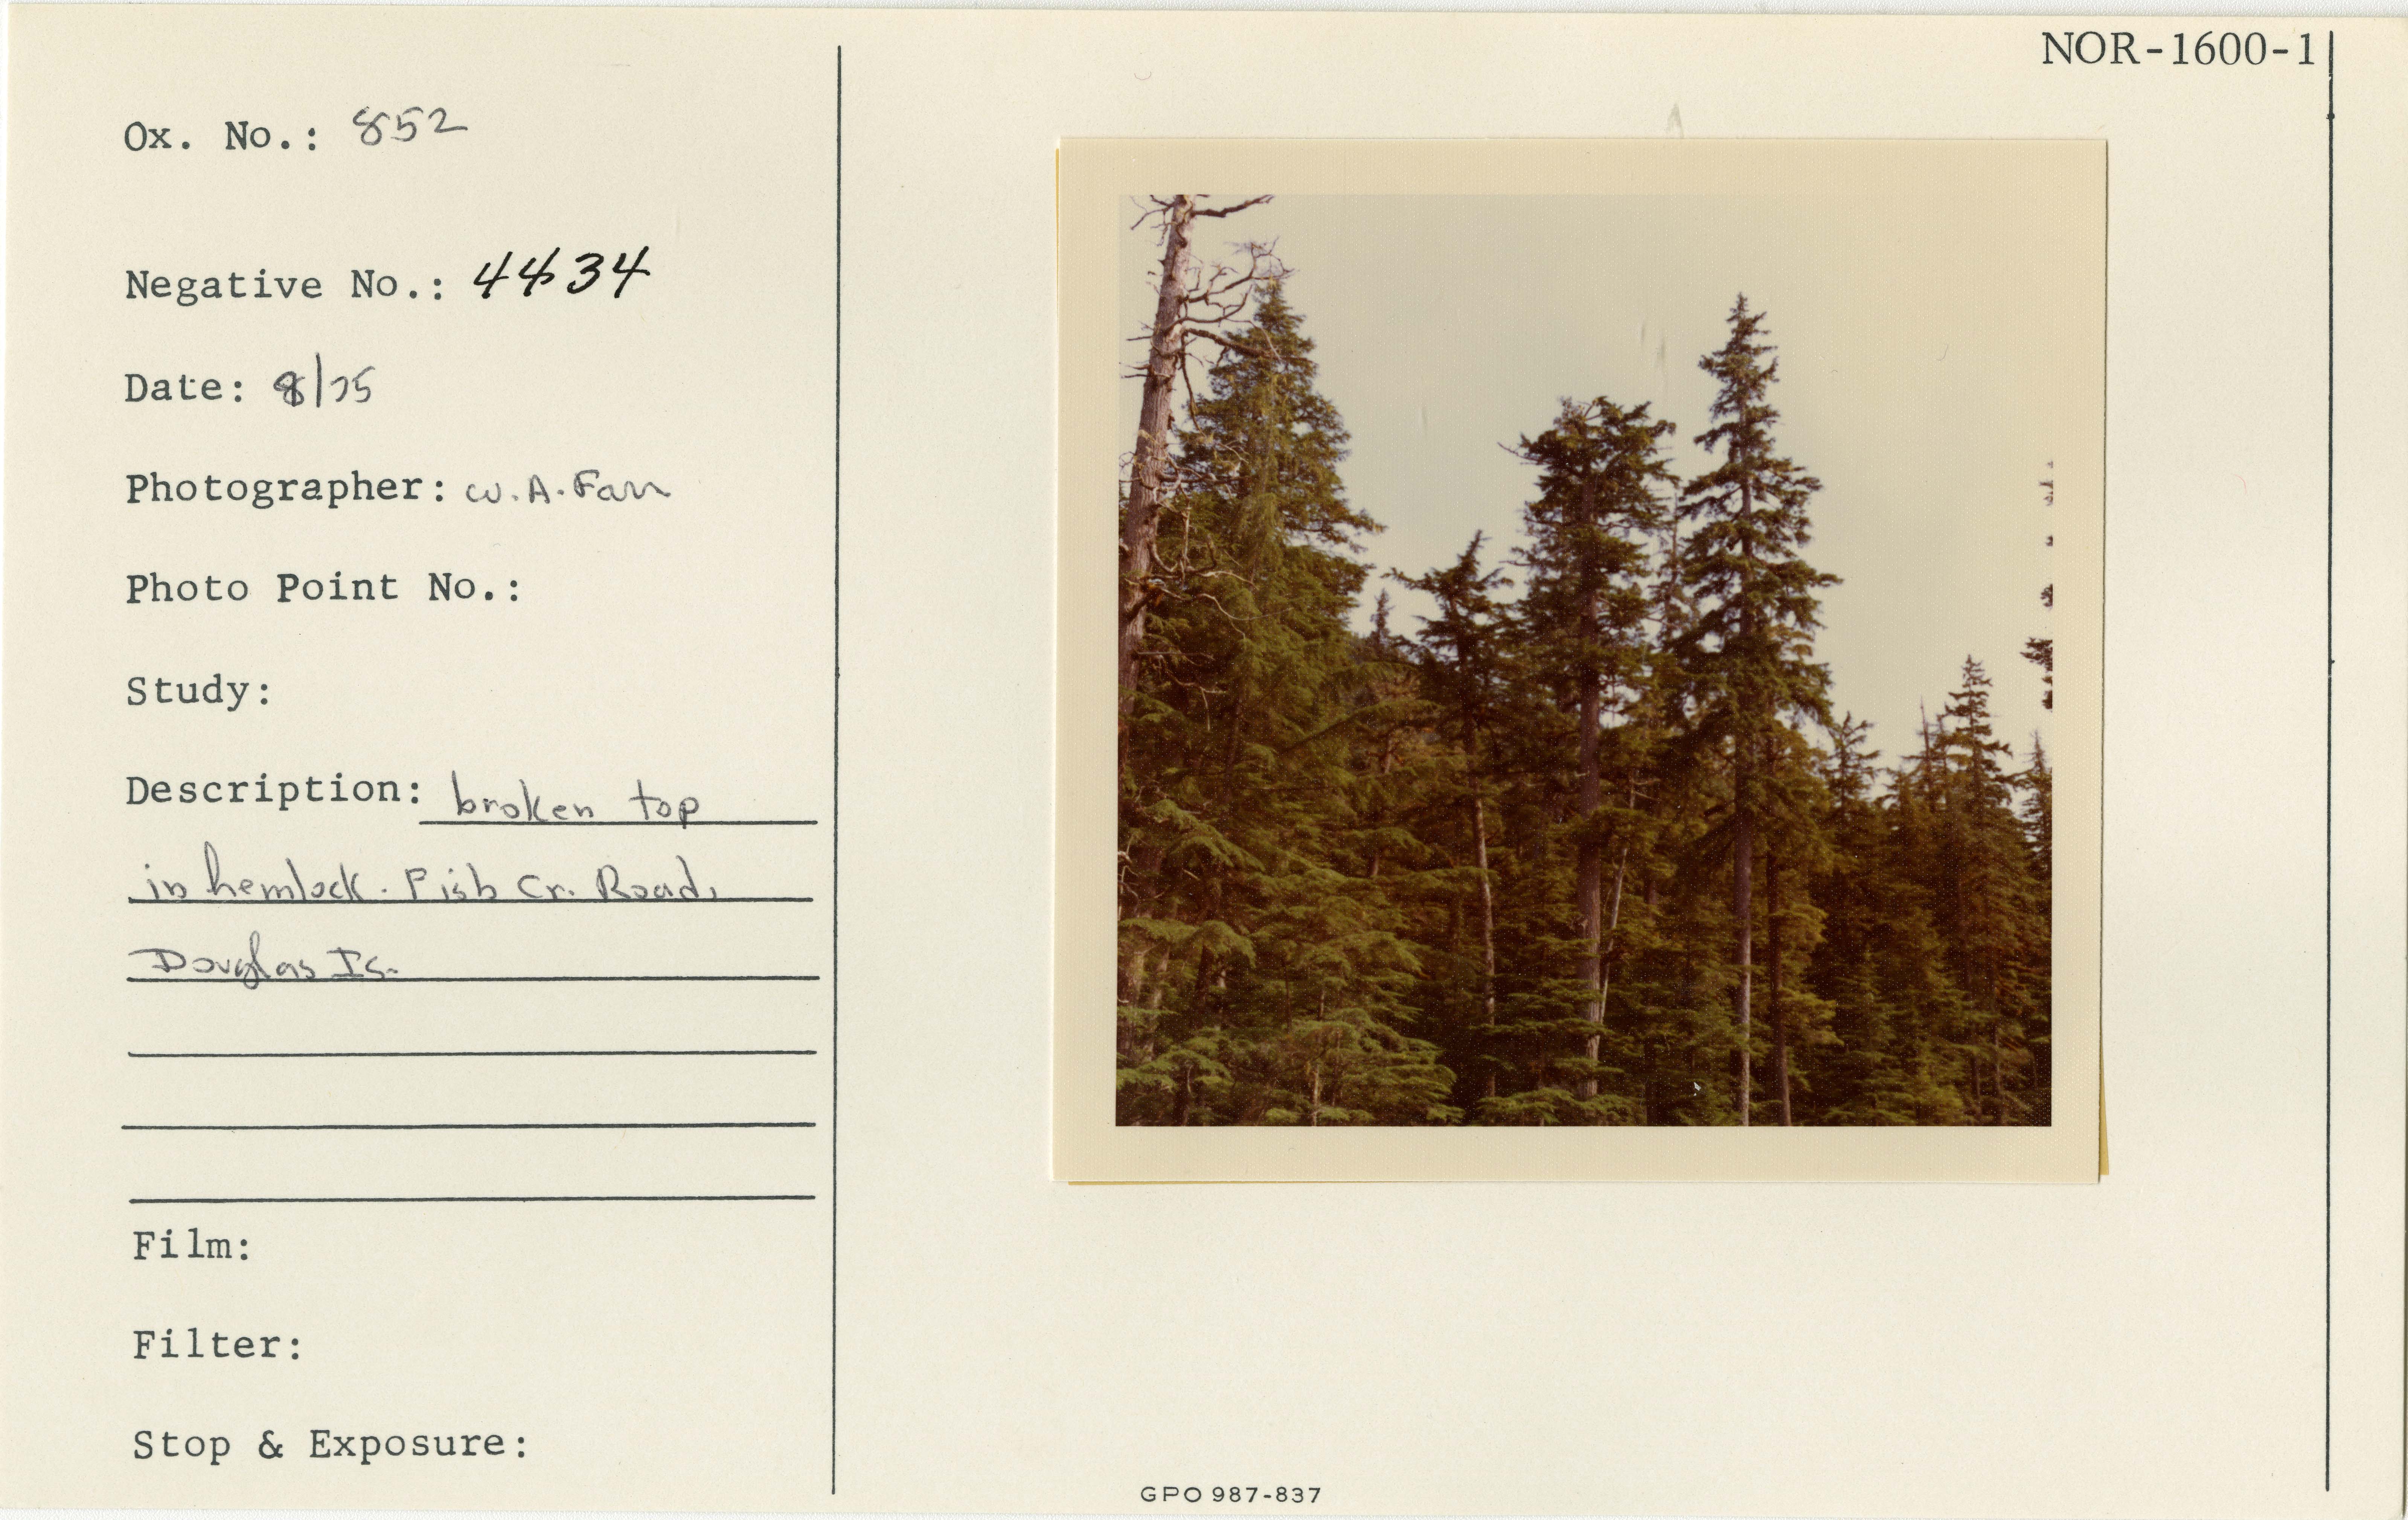 NOR-1600-1
Ox. No.: 852
Negative No.: 4434
Date: 8/75
Photographer: W.A. Farr
Photo Point No.:
Study:
Description: broken top
in hemlock. Fish Cr. Road,
Douglas Is.
Film:
Filter:
Stop & Exposure:
GPO 987-837